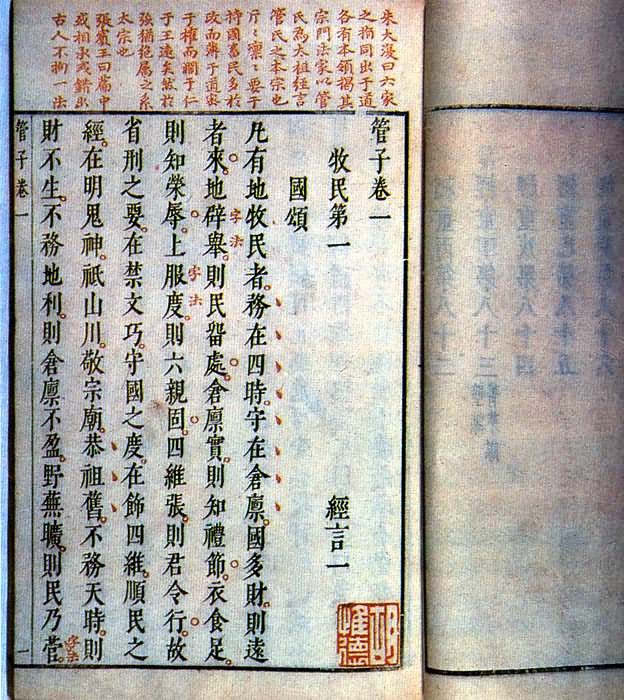 朱大澴曰六家
之指同出于道
各有本領揭其
宗門法家以管
氏為太祖經言
管氏之本宗也
斤〻凜〻要于
持國畜民多於
政而薄于道密
于權而闊于仁
于王遠矣然於
強猶絶属之系
太宗也
張賓王曰篇中
或相承或錯出
古人不拘一法
管子卷一
牧民第一 經言一
國頌
凡有地牧民者。務在四時。守在倉廩。國多財。則遠
者來。地辟舉。則民畱處。倉廩實。則知禮節。衣食足。
字法
則知榮辱。上服度。則六親固。四維張。則君令行。故
字法
省刑之要。在禁文巧。守國之度。在飾四維。順民之
經。在明鬼神。祇山川。敬宗廟。恭祖舊。不務天時。則
財不生。不務地利。則倉廩不盈。野蕪曠。則民乃菅。
字法
管子卷一 一